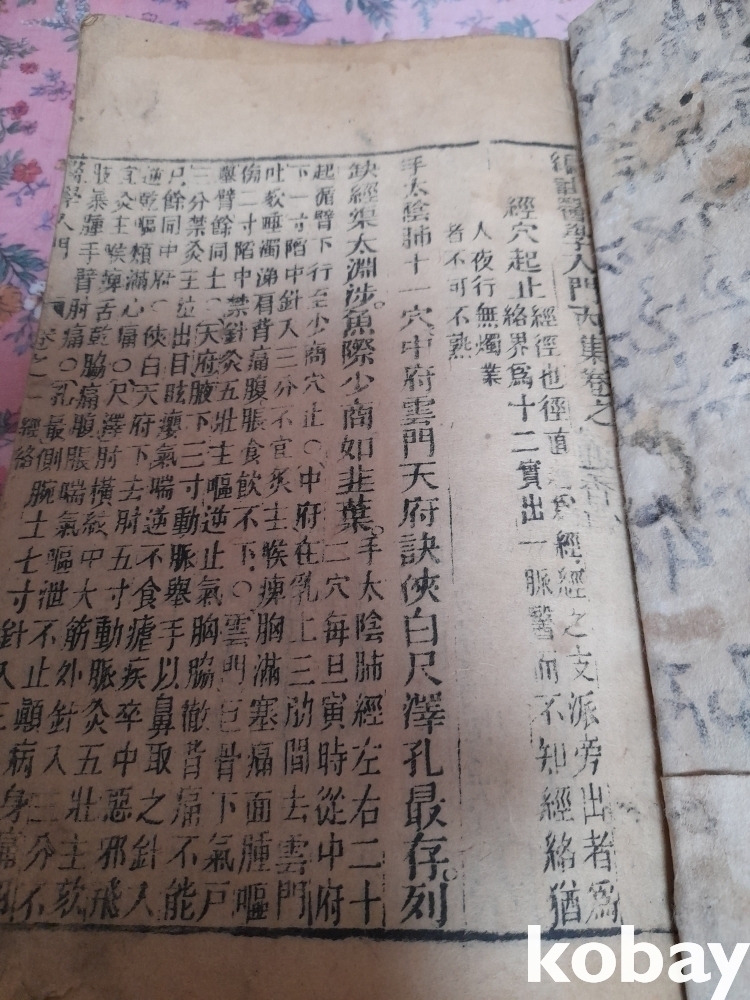 編註醫學入門內集卷之一
經穴起止經徑也徑直 者爲經經之支派旁出者爲
絡界爲十二實出一脈醫而不知經絡猶
人夜行無燭業
者不可不熟
手太陰肺十一穴中府雲門天府訣俠白尺澤孔最存列
缺經渠太淵涉魚際少商如韭葉手太陰肺經左右二十
二穴每旦寅時從中府
起循臂下行至少商穴止○中府在乳上三肋間去雲門
下一寸陷中針入三分不宜灸主喉痺胸滿塞痛面腫嘔
吐欬唾濁涕肩背痛腹脹食飲不下○雲門巨骨下氣戶
傍二寸陷中禁針灸五壯主嘔逆上氣胸脇徹背痛不能
舉臂餘同上○天府腋下三寸動脈舉手以鼻取之針入
三分禁灸主 出目眩癭氣喘逆不食瘧疾卒中惡邪飛
尸餘同中府○俠白天府下去肘五寸動脈灸五壯主欬
逆乾嘔煩滿心痛○尺澤肘橫紋中大筋外針入三分不
宜灸主喉痺舌乾脇痛腹脹喘氣嘔泄不止癲病身痛
肢暴腫手臂肘痛○孔最側腕上七寸針入三
醫學入門 卷之一 經絡
kobay